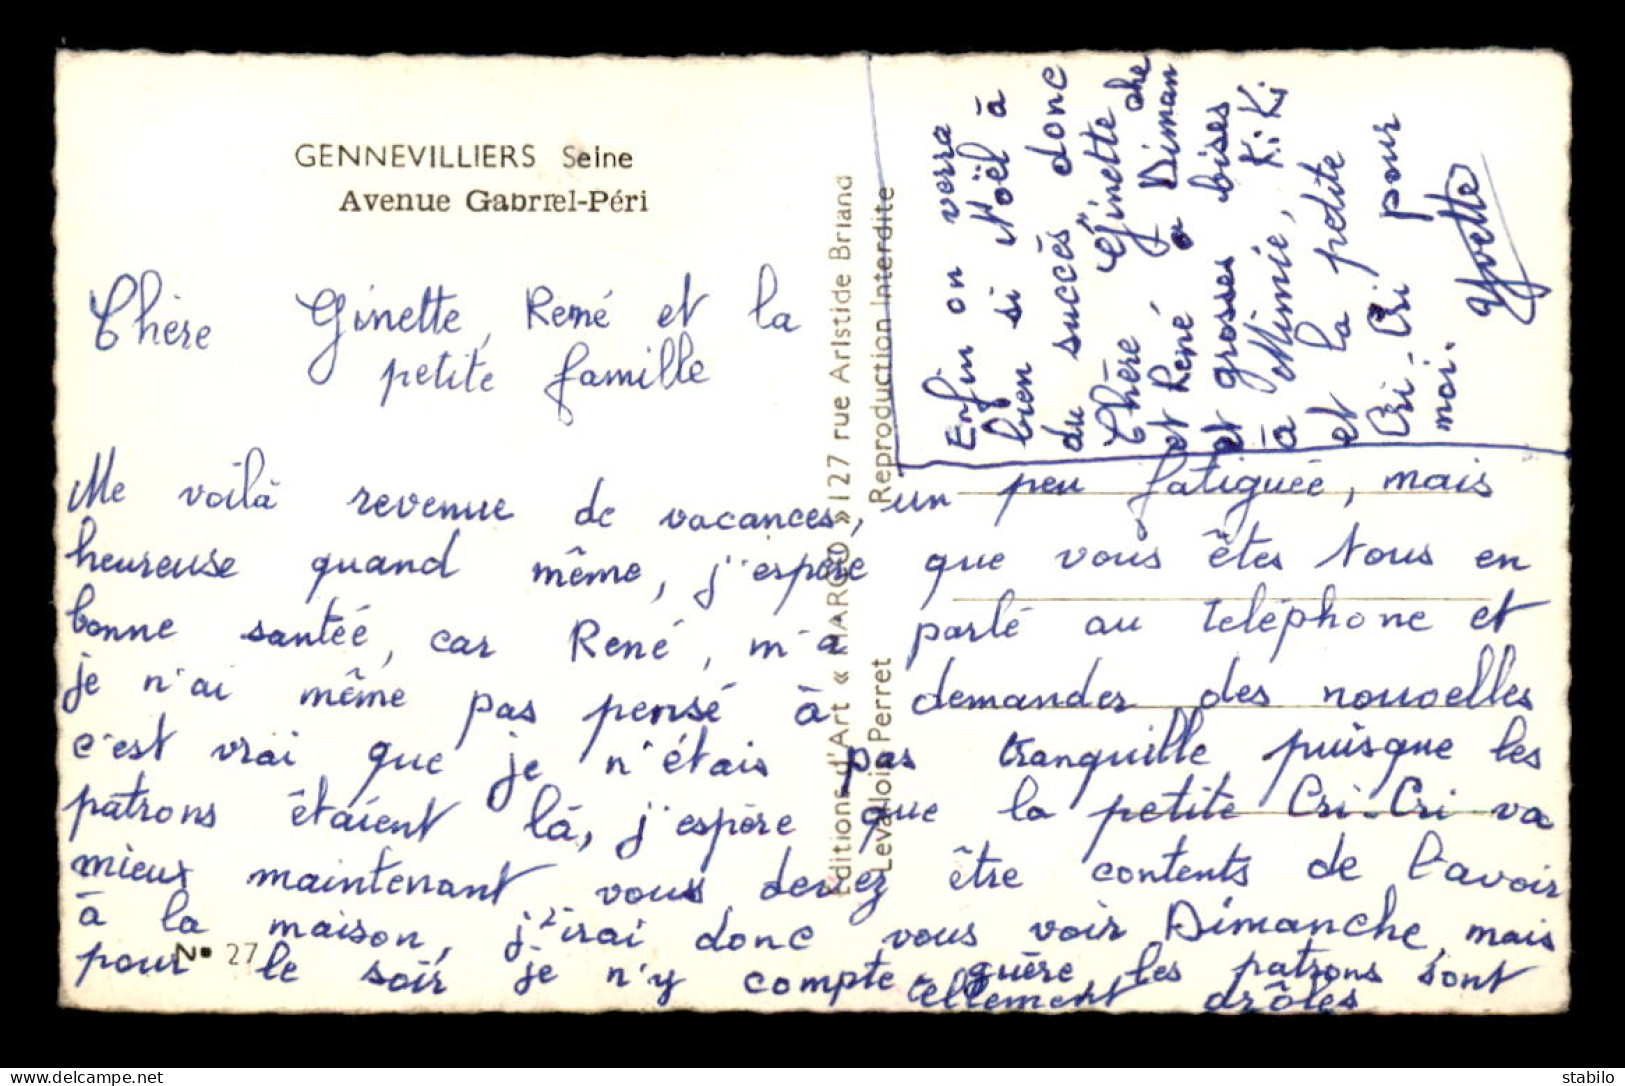 GENNEVILLIERS Seine
Avenue Gabriel-Péri
Chère Ginette, René et la
petite famille
Me voilà revenue de vacances, un peu fatiguée, mais
heureuse quand même, j'espère que vous êtes tous en
bonne santéé, car René, m'a parlé au teléphone et
je n'ai même pas pensé à demander des nouvelles
c'est vrai que je n'étais pas tranquille puisque les
patrons êtaient là, j'espère que la petite Cri-Cri va
mieux maintenant vous devez être contents de l'avoir
à la maison, j'irai donc vous voir Dimanche, mais
pour le soir je n'y compte guère les patrons sont
tellement drôles
Enfin on verra
bien si Noël à
du succès donc
Chère Ginette
et René à Diman
che
et grosses bises
à Mimie, KiKi
et la petite
Cri-Cri pour
moi.
Yvette
Editions d'Art « MARCO » 127 rue Aristide Briand
Levallois Perret Reproduction Interdite
No 27
stabilo